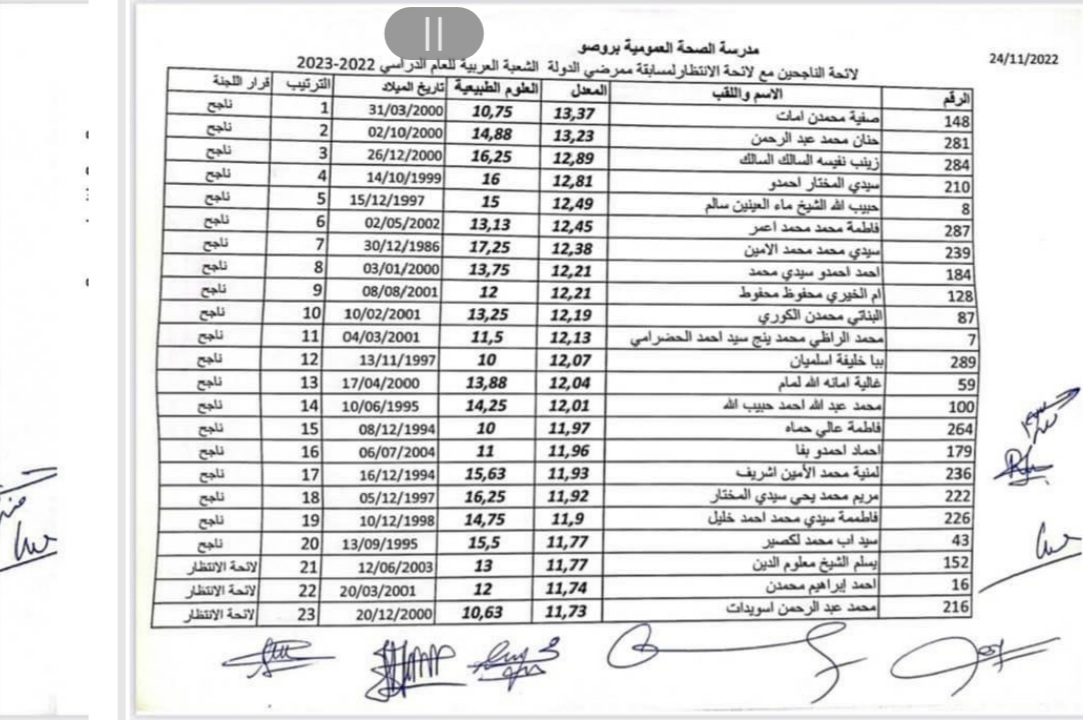 مدرسة الصحة العمومية بروصو
24/11/2022
لائحة الناجحين مع لائحة الانتظار لمسابقة ممرضي الدولة الشعبة العربية للعام الدراسي 2022-2023
الرقم الاسم واللقب المعدل العلوم الطبيعية تاريخ الميلاد الترتيب قرار اللجنة
148 صفية محمدن امات 13,37 10,75 31/03/2000 1 ناجح
281 حنان محمد عبد الرحمن 13,23 14,88 02/10/2000 2 ناجح
284 زينب نفيسه السالك السالك 12,89 16,25 26/12/2000 3 ناجح
210 سيدي المختار احمدو 12,81 16 14/10/1999 4 ناجح
8 حبيب الله الشيخ ماء العينين سالم 12,49 15 15/12/1997 5 ناجح
287 فاطمة محمد محمد اعمر 12,45 13,13 02/05/2002 6 ناجح
239 سيدي محمد محمد الامين 12,38 17,25 30/12/1986 7 ناجح
184 احمد احمدو سيدي محمد 12,21 13,75 03/01/2000 8 ناجح
128 ام الخيري محفوظ محفوظ 12,21 12 08/08/2001 9 ناجح
87 البناتي محمدن الكوري 12,19 13,25 10/02/2001 10 ناجح
7 محمد الراظي محمد ينج سيد احمد الحضرامي 12,13 11,5 04/03/2001 11 ناجح
289 ببا خليفة اسلميان 12,07 10 13/11/1997 12 ناجح
59 غالية امانه الله لمام 12,04 13,88 17/04/2000 13 ناجح
100 محمد عبد الله احمد حبيب الله 12,01 14,25 10/06/1995 14 ناجح
264 فاطمة عالي حماه 11,97 10 08/12/1994 15 ناجح
179 احماد احمدو بفا 11,96 11 06/07/2004 16 ناجح
236 لمنية محمد الأمين اشريف 11,93 15,63 16/12/1994 17 ناجح
222 مريم محمد يحي سيدي المختار 11,92 16,25 05/12/1997 18 ناجح
226 فاطممة سيدي محمد احمد خليل 11,9 14,75 10/12/1998 19 ناجح
43 سيد اب محمد لكصير 11,77 15,5 13/09/1995 20 ناجح
152 يسلم الشيخ معلوم الدين 11,77 13 12/06/2003 21 لائحة الانتظار
16 احمد إبراهيم محمدن 11,74 12 20/03/2001 22 لائحة الانتظار
216 محمد عبد الرحمن اسويدات 11,73 10,63 20/12/2000 23 لائحة الانتظار